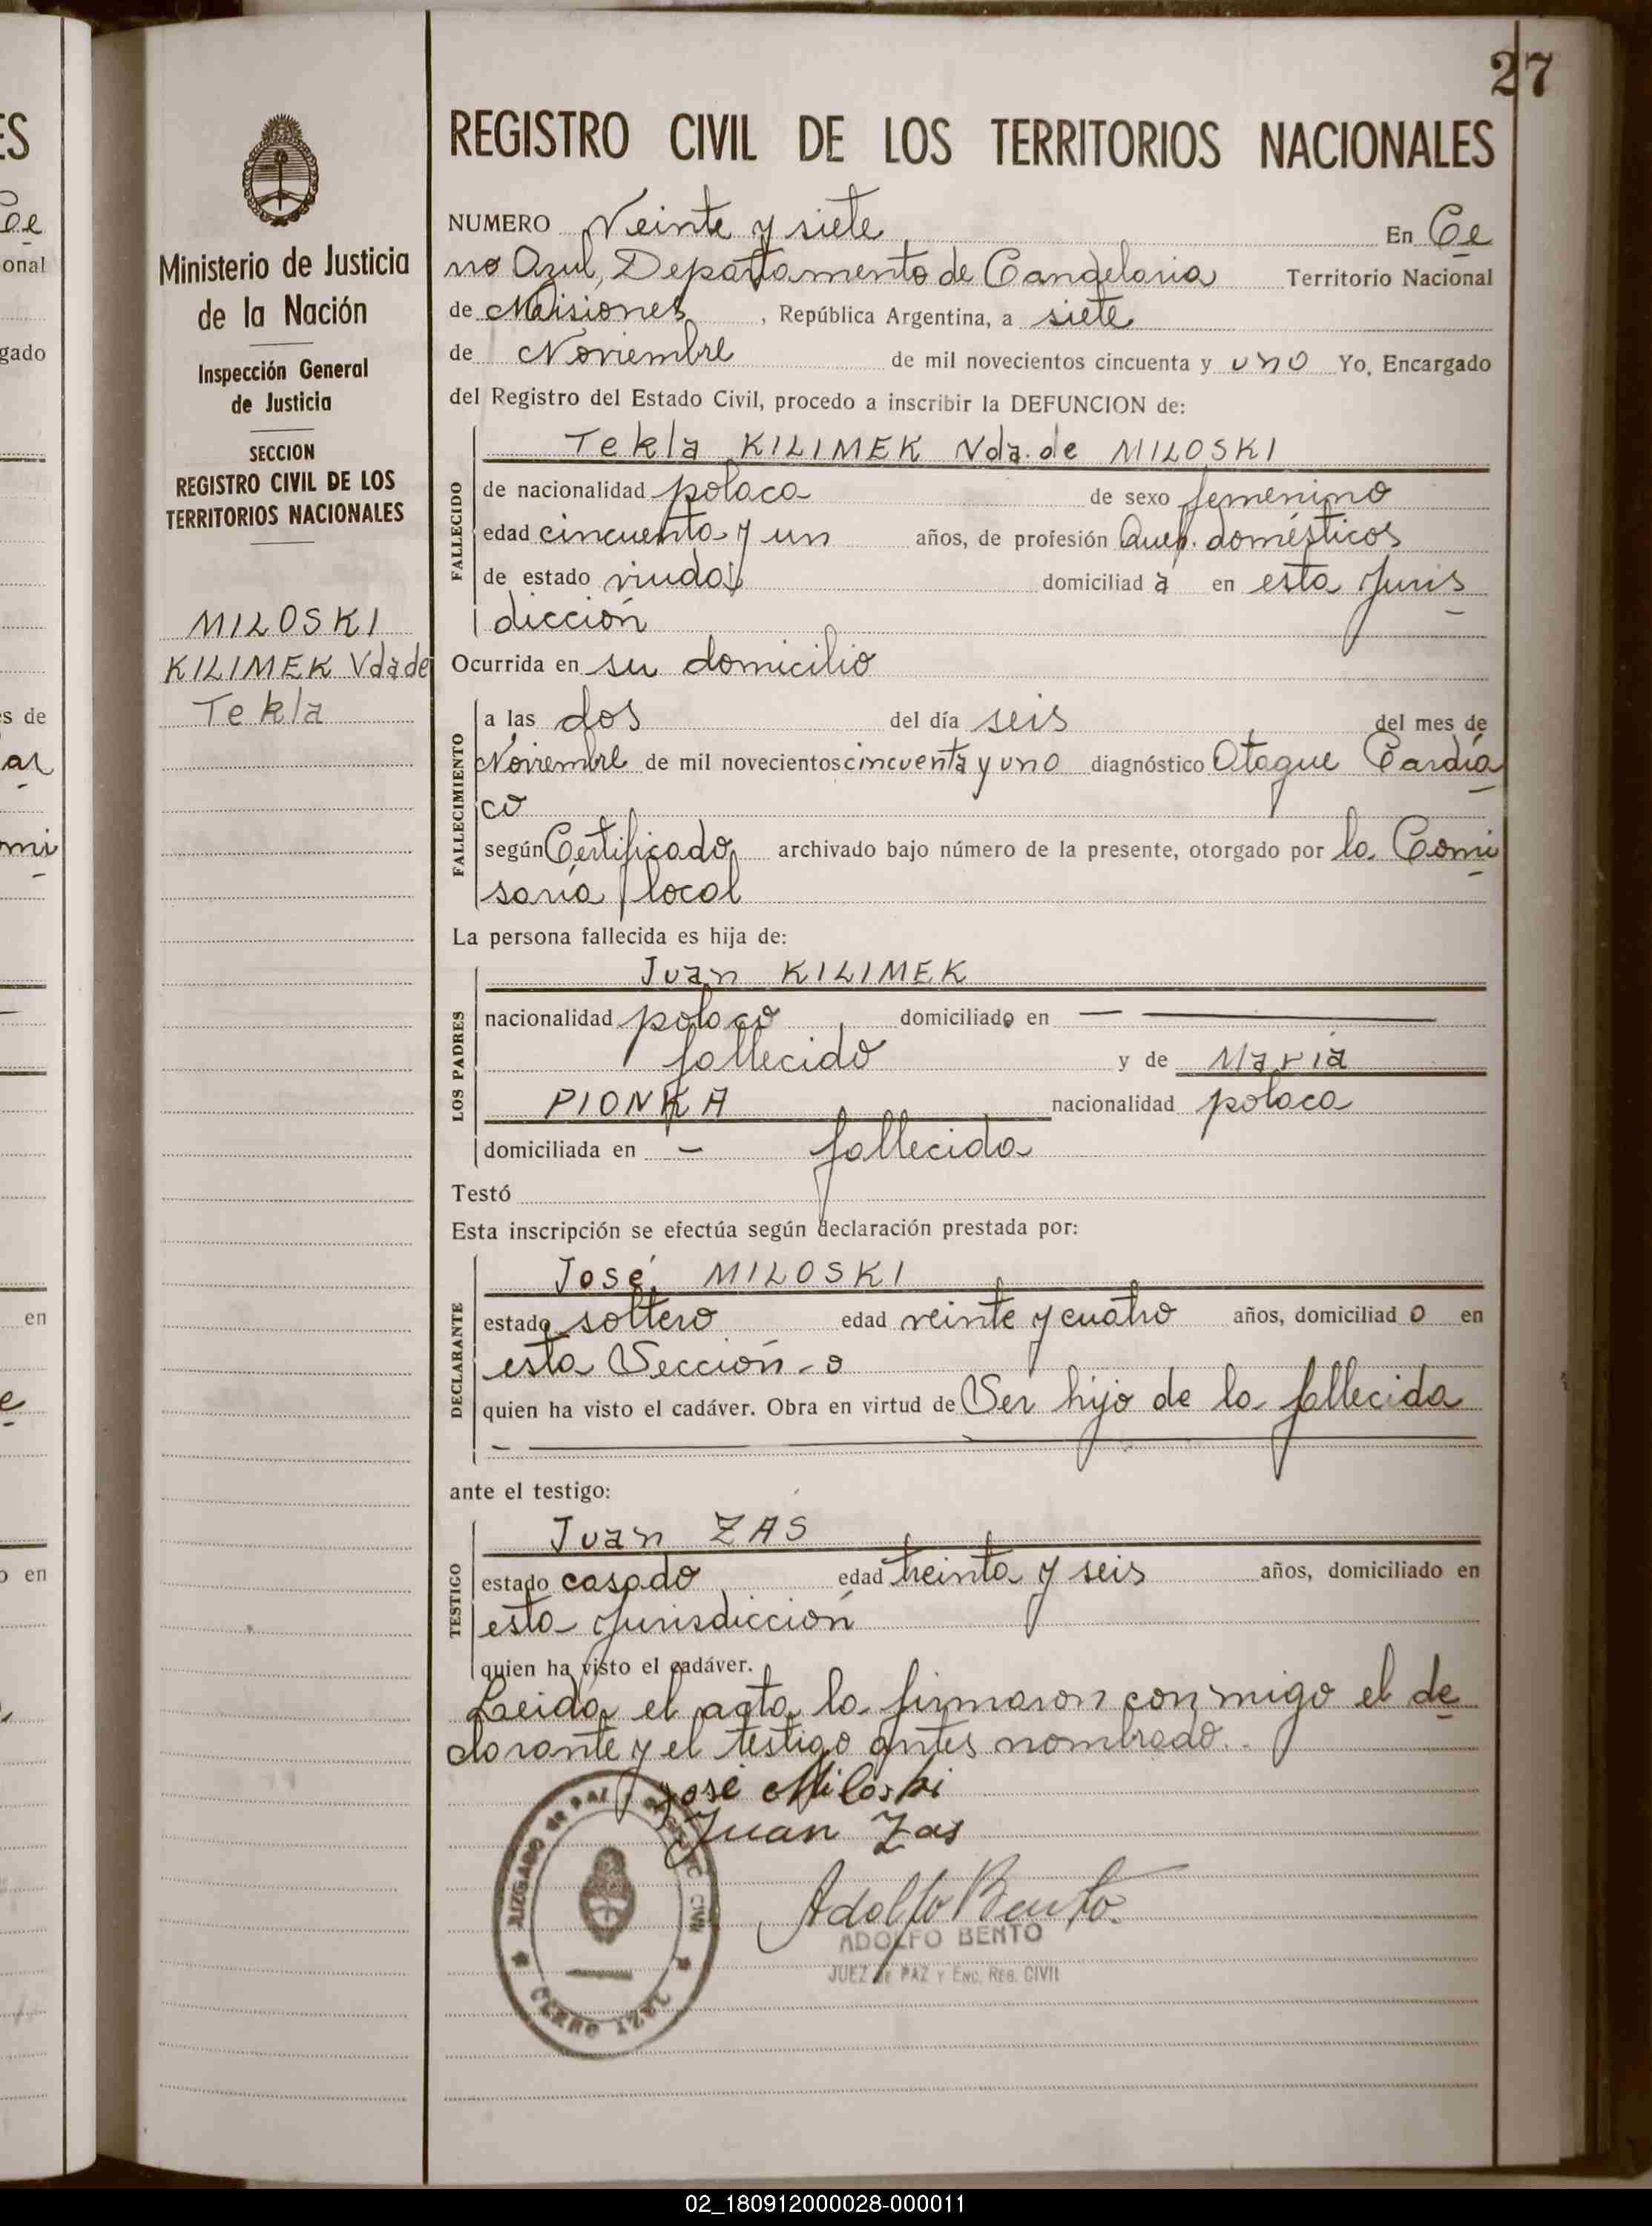 27
REGISTRO CIVIL DE LOS TERRITORIOS NACIONALES
Ministerio de Justicia
de la Nación
Inspección General
de Justicia
SECCION
REGISTRO CIVIL DE LOS
TERRITORIOS NACIONALES
MILOSKI
KILIMEK Vda de
Tekla
NUMERO Veinte y siete En Ce
rro Azul, Departamento de Candelaria Territorio Nacional
de Misiones, República Argentina, a siete
de Noviembre de mil novecientos cincuenta y uno Yo, Encargado
del Registro del Estado Civil, procedo a inscribir la DEFUNCION de:
Tekla KILIMEK Vda. de MILOSKI
FALLECIDO
de nacionalidad polaca de sexo femenino
edad cincuenta y un años, de profesión Queh. domésticos
de estado viuda domiciliad a en esta Juris
dicción
Ocurrida en su domicilio
FALLECIMIENTO
a las dos del día seis del mes de
Noviembre de mil novecientos cincuenta y uno diagnóstico Ataque Cardía
co
según Certificado archivado bajo número de la presente, otorgado por la Comi
saría local
La persona fallecida es hija de:
LOS PADRES
Juan KILIMEK
nacionalidad polaco domiciliado en —
fallecido y de María
PIONKA nacionalidad polaca
domiciliada en — fallecida
Testó
Esta inscripción se efectúa según declaración prestada por:
DECLARANTE
José MILOSKI
estado soltero edad veinte y cuatro años, domiciliad o en
esta Sección - o
quien ha visto el cadáver. Obra en virtud de Ser hijo de la fallecida
ante el testigo:
TESTIGO
Juan ZAS
estado casado edad treinta y seis años, domiciliado en
esta Jurisdicción
quien ha visto el cadáver.
Leida el acta la firmaron conmigo el de
clarante y el testigo antes nombrado.-
José Miloski
Juan Zas
Adolfo Bento
ADOLFO BENTO
JUEZ DE PAZ Y ENC. REG. CIVIL
JUZGADO DE PAZ CIVIL
CERRO AZUL
02_180912000028-000011